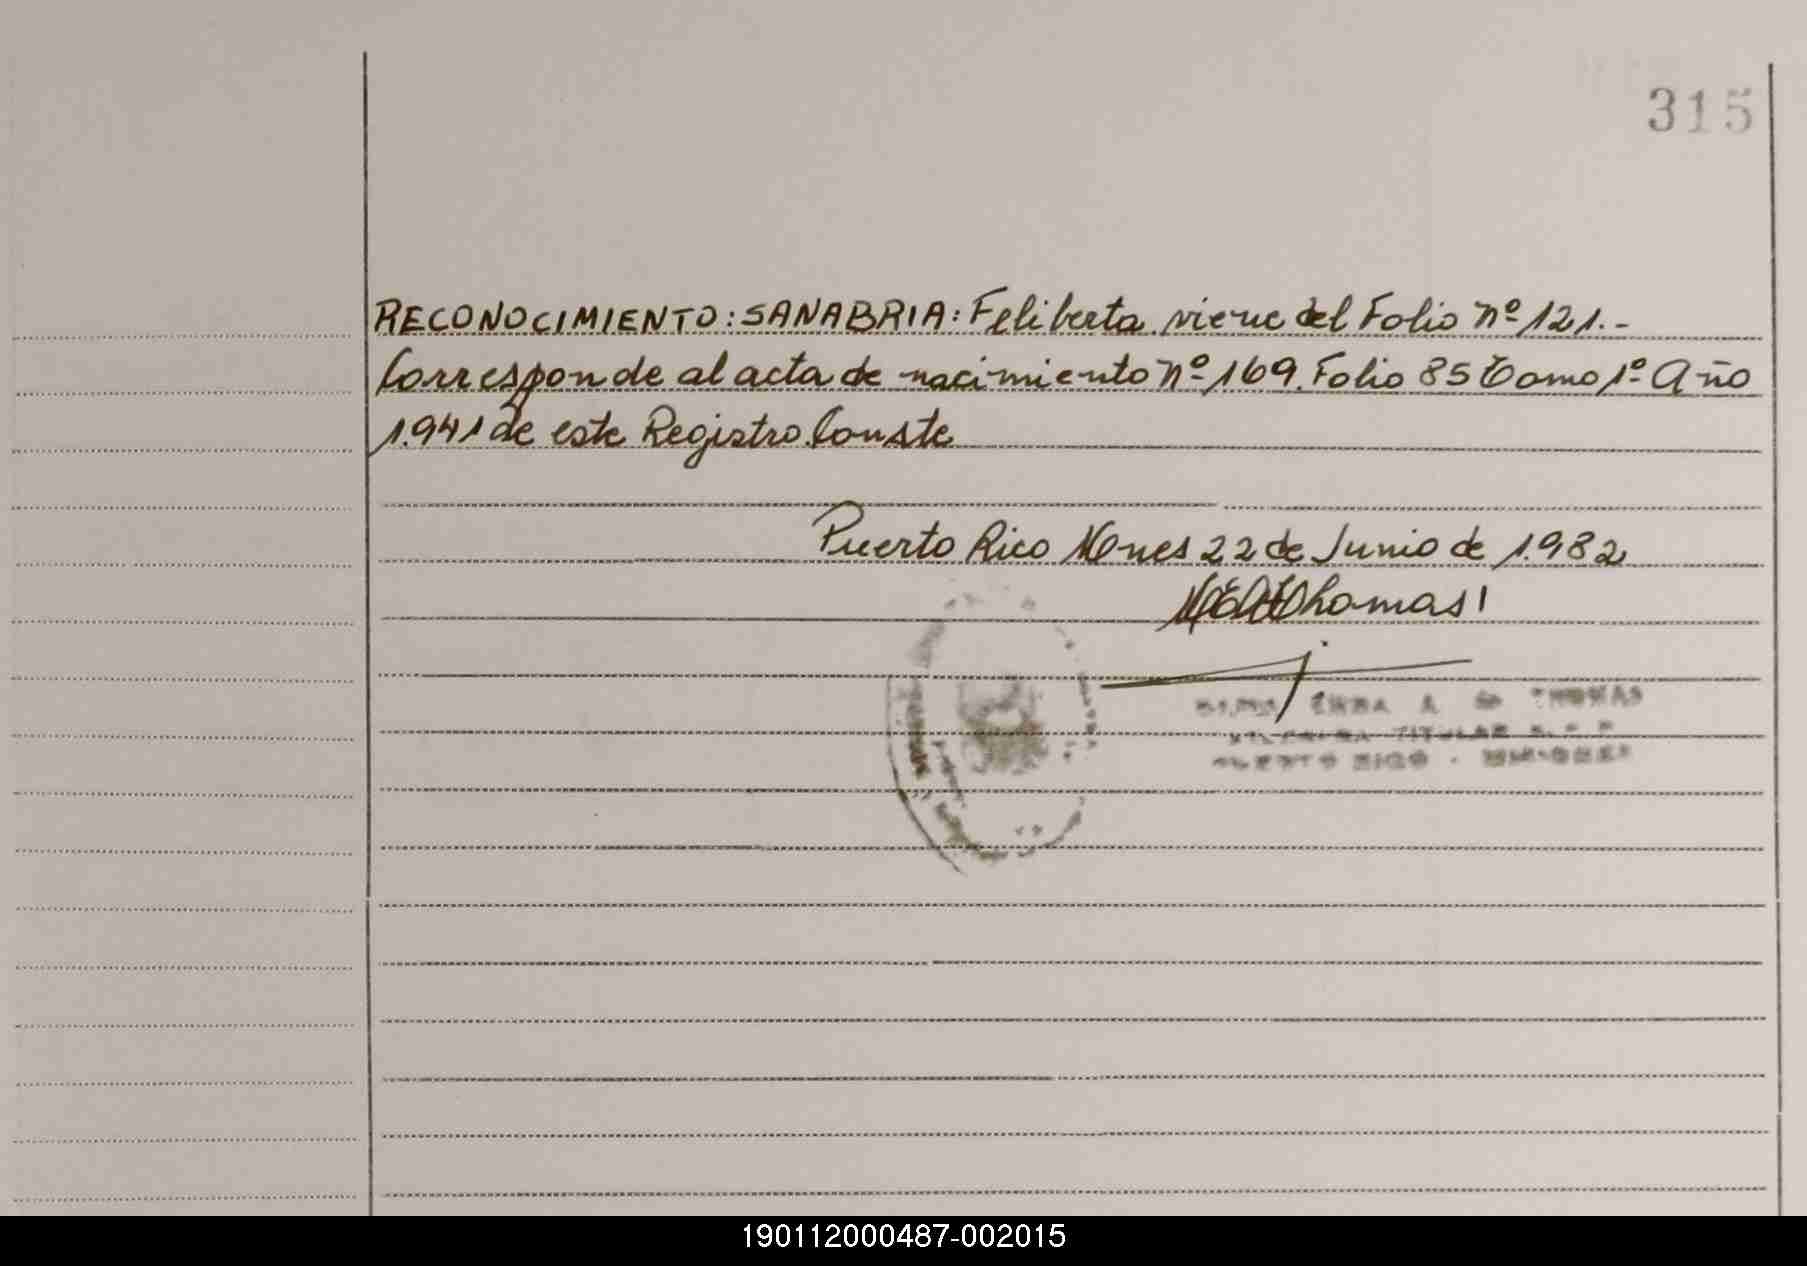 315
RECONOCIMIENTO: SANABRIA: Feliberta viene del Folio nº 121.-
Corresponde al acta de nacimiento nº 169. Folio 85 Tomo 1º Año
1.941 de este Registro. Conste
Puerto Rico Mnes 22 de Junio de 1.982
Thomas
THOMAS
TITULAR
PUERTO RICO - MISIONES
190112000487-002015